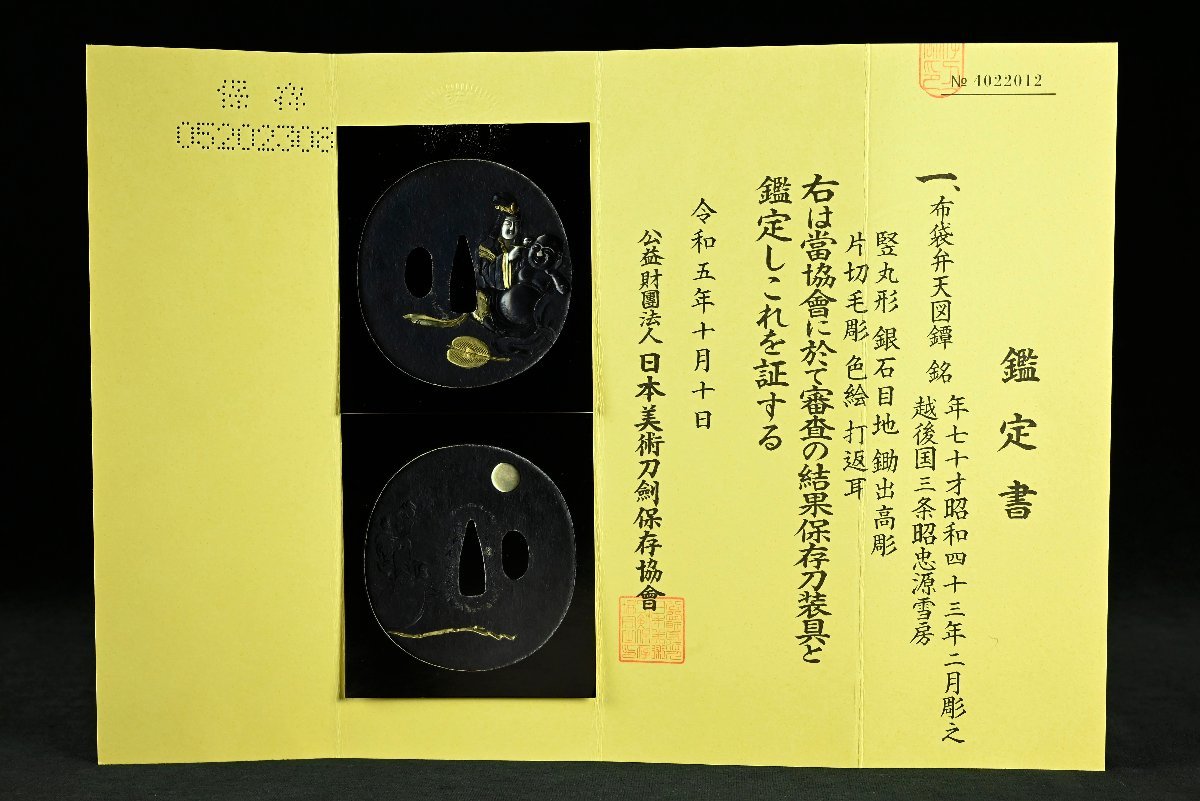 № 4022012
鑑定書
一、布袋弁天図鐔 銘 年七十才昭和四十三年二月彫之
越後国三条昭忠源雪房
竪丸形 銀石目地 鋤出高彫
片切毛彫 色絵 打返耳
右は當協會に於て審査の結果保存刀装具と
鑑定しこれを証する
令和五年十月十日
公益財團法人 日本美術刀劍保存協會
保存
05202308